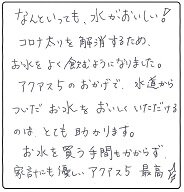 なんといっても、水がおいしい!
コロナ太りを解消するため、
お水をよく飲むようになりました。
アクアス5のおかげで、水道から
ついだお水をおいしくいただける
のは、とても助かります。
お水を買う手間もかからず、
家計にも優しいアクアス5 最高